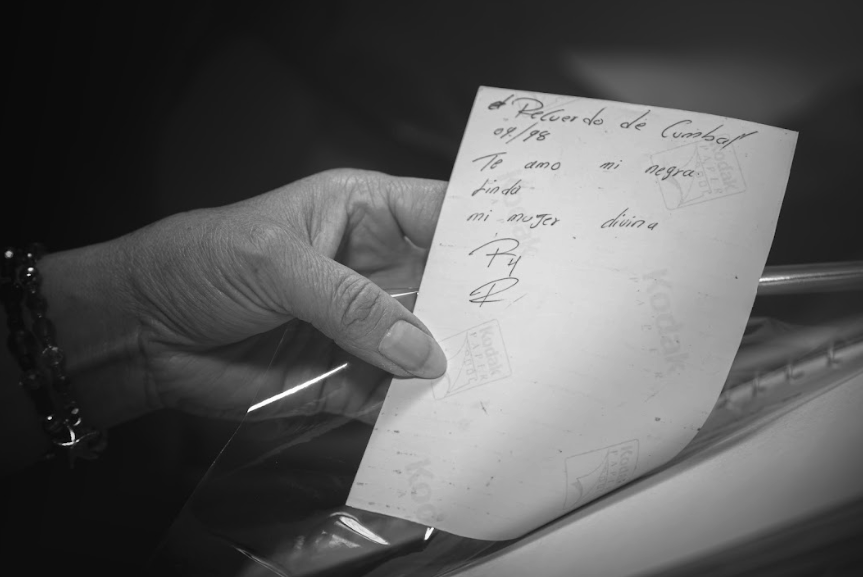 Recuerdo de Cumbal
09/98
Te amo mi negra
linda
mi mujer divina
Kodak
PAPER
Kodak
Kodak
PAPER
Kodak